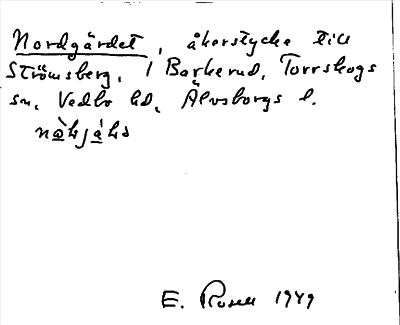 Nordgärdet, åkerstycke till
Strömsberg, 1 Barkerud, Torrskogs
sn, Vedbo hd, Älvsborgs l.
E. Rosen 1949